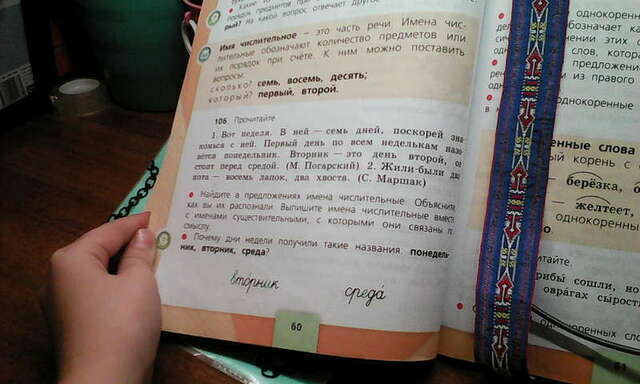 порядок предметов при
рый? На какой вопрос отвечает другое
Имя числительное — это часть речи. Имена чис-
лительные обозначают количество предметов или
их порядок при счёте. К ним можно поставить
вопросы:
сколько? семь, восемь, десять;
который? первый, второй.
106 Прочитайте.
1. Вот неделя. В ней — семь дней, поскорей зна-
комься с ней. Первый день по всем неделькам назо-
вётся понедельник. Вторник — это день второй, он
стоит перед средой. (М. Погарский) 2. Жили-были два
кота — восемь лапок, два хвоста. (С. Маршак)
• Найдите в предложениях имена числительные. Объясните,
как вы их распознали. Выпишите имена числительные вместе
с именами существительными, с которыми они связаны по
смыслу.
• Почему дни недели получили такие названия: понедель-
ник, вторник, среда?
вторник среда́
60
однокоренные
обозначает
этих
слов, которая
из правого
однокоренные
енные слова
ый корень с
берёзка,
желтеет,
однокоренные
итайте.
рибы сошли, но
оврагах сырость
однокоренных слов
61